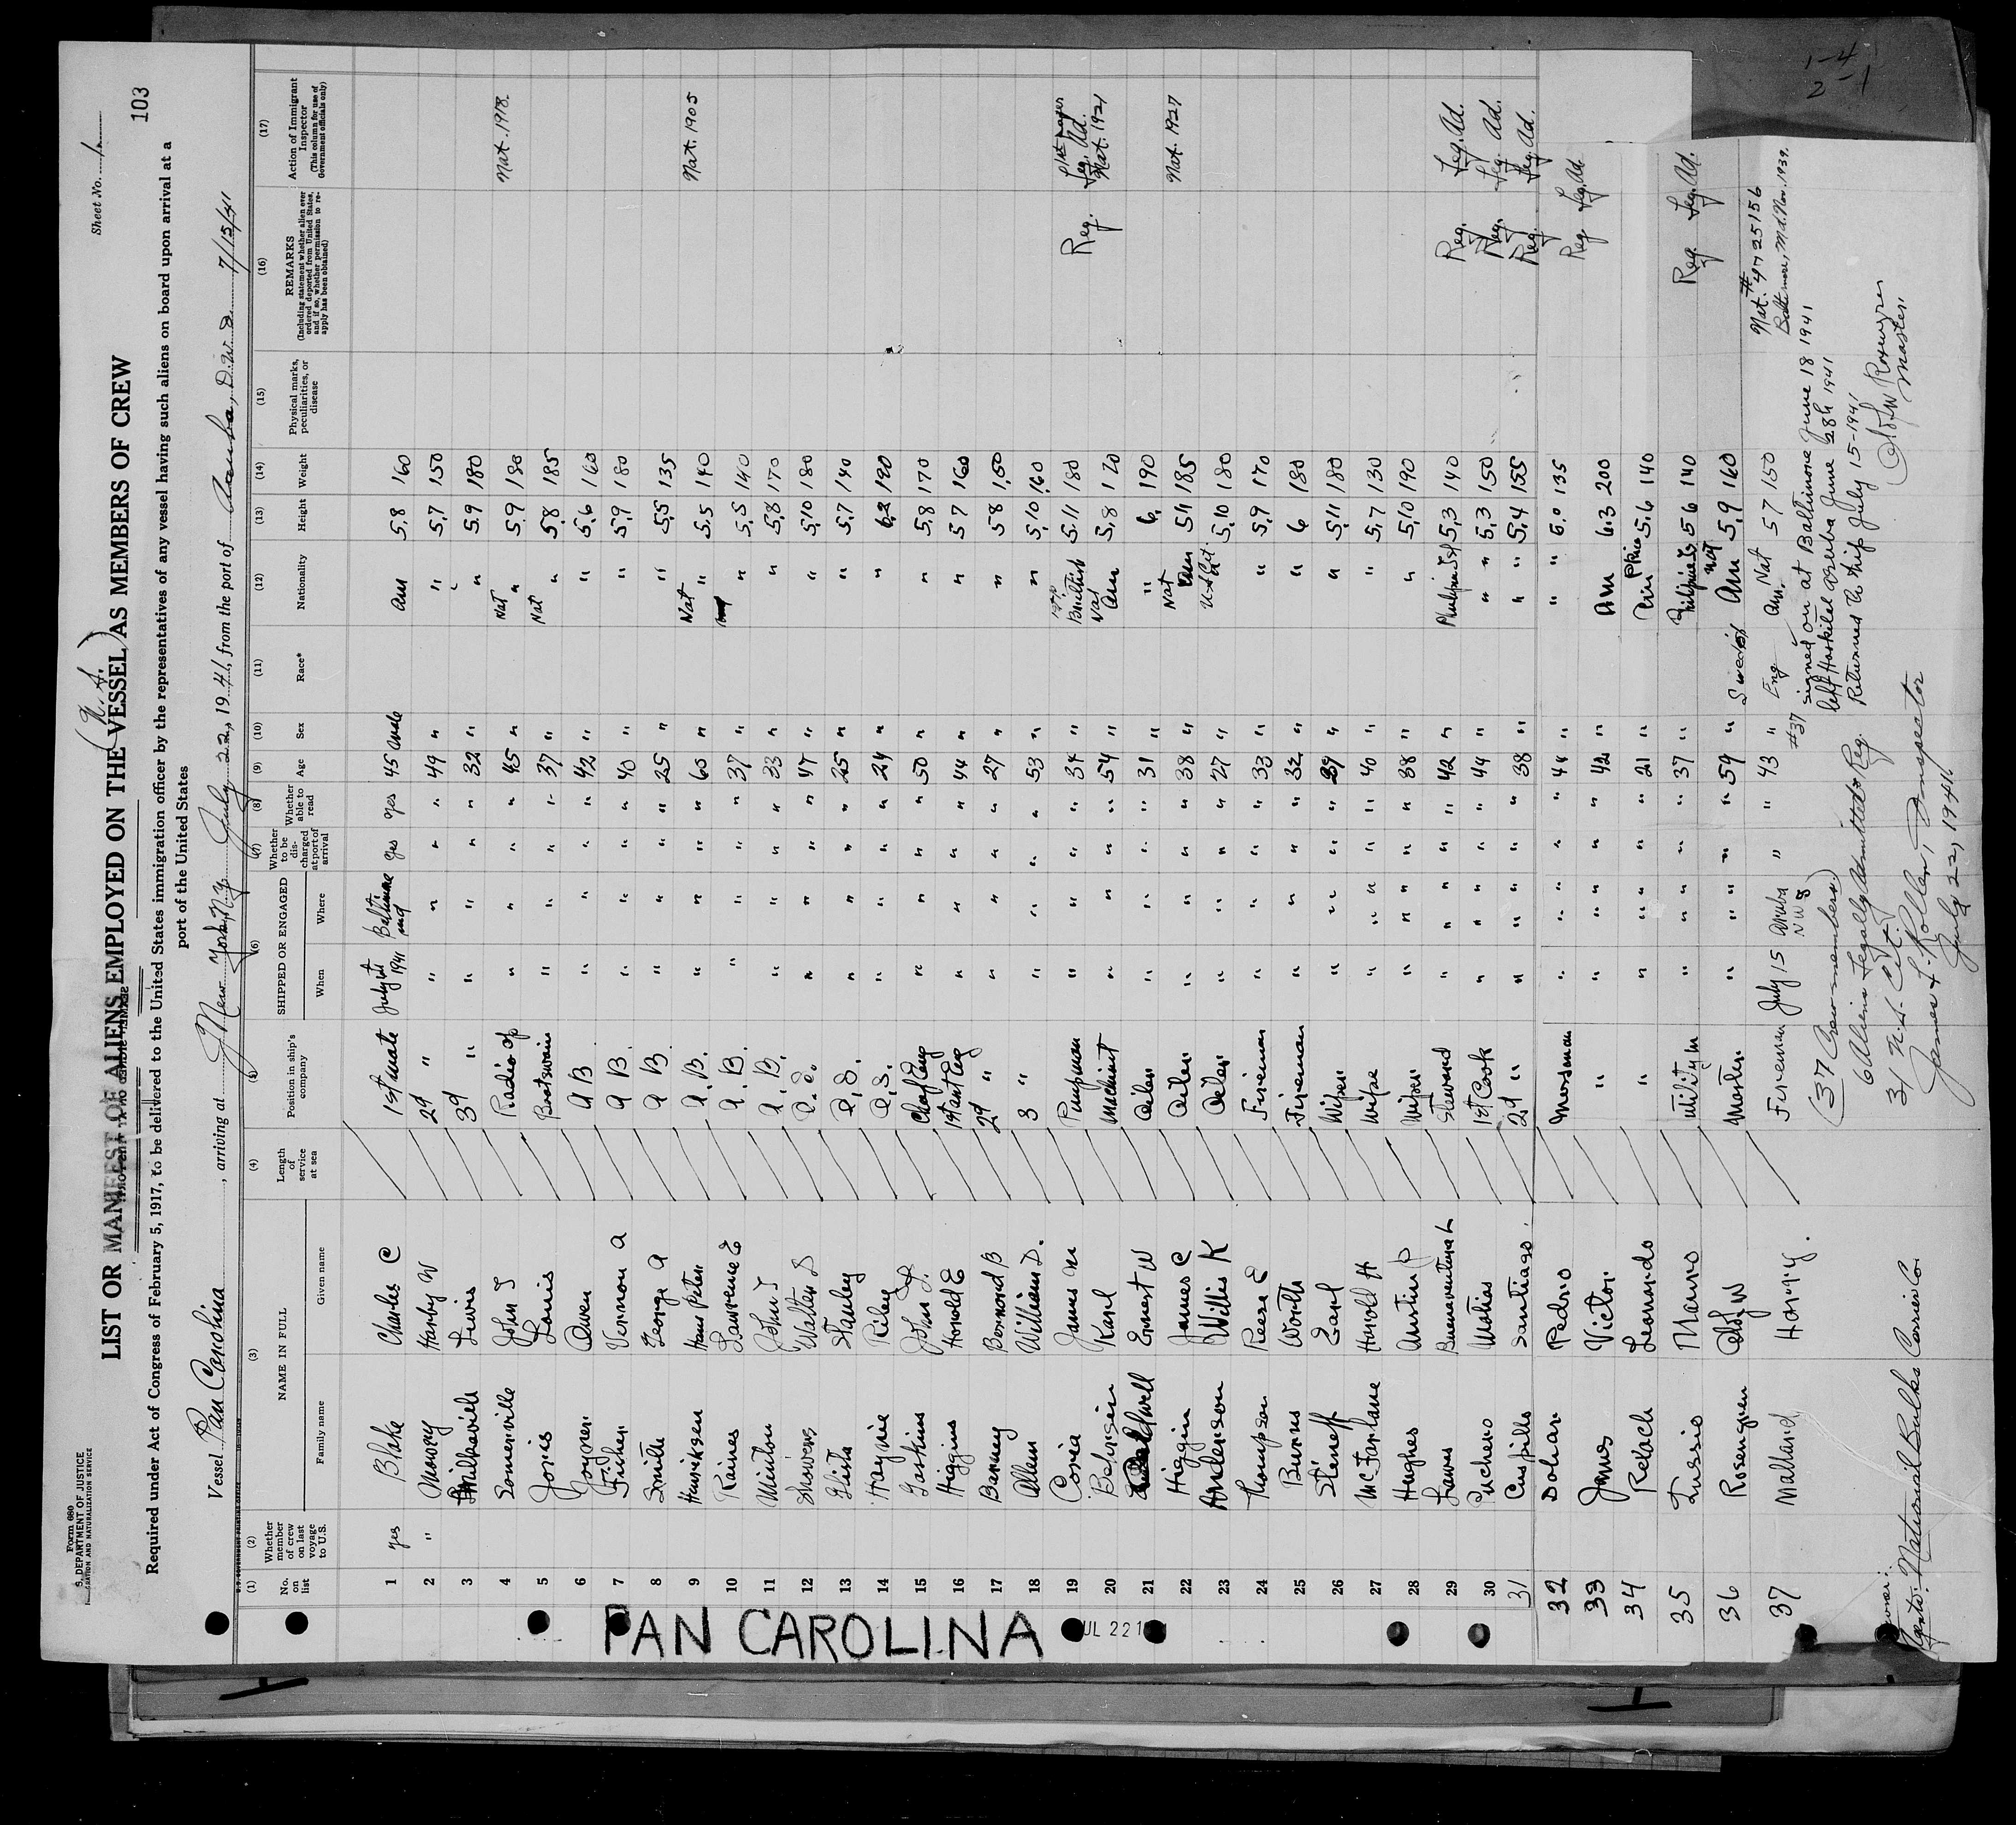 Form 680
S. DEPARTMENT OF JUSTICE
GRATION AND NATURALIZATION SERVICE
Sheet No. 1
103
LIST OR MANIFEST OF ALIENS EMPLOYED ON THE VESSEL AS MEMBERS OF CREW
Required under Act of Congress of February 5, 1917, to be delivered to the United States immigration officer by the representatives of any vessel having such aliens on board upon arrival at a
port of the United States
Vessel Pan Carolina, arriving at New York, N.Y. July 22, 1941, from the port of Aruba, D.W.I. 7/15/41
(1) No. on list (2) Whether member of crew on last voyage to U.S. (3) NAME IN FULL Family name Given name (4) Length of service at sea (5) Position in ship's company (6) SHIPPED OR ENGAGED When Where (7) Whether to be discharged at port of arrival (8) Whether able to read (9) Age (10) Sex (11) Race* (12) Nationality (13) Height (14) Weight (15) Physical marks, peculiarities, or disease (16) REMARKS (Including statement whether alien ever ordered deported from United States, and if so, whether permission to reapply has been obtained) (17) Action of Immigrant Inspector (This column for use of Government officials only)
1 yes Blake Charles C 1st mate 1941 Baltimore Md yes yes 45 male Am 5.8 160
2 " Harby W 2d " " " " " 49 " " 5.7 150
3 Lewis 3d " " " " " 32 " " 5.9 180
4 Somerville John T Radio op " " " " 45 " Nat " 5.9 180 Nat. 1918.
5 Joris Louis Boatswain " " " " 37 " Nat " 5.8 185
6 Joyner Owen A B. " " " " 42 " " 5.6 160
7 Fisher Vernon A A B. " " " " 40 " " 5.9 180
8 Smith George A A B " " " " 25 " " 5.5 135
9 Henriksen Hans Peter A. B. " " " " 60 " Nat " 5.5 140 Nat. 1905
10 Raines Lawrence E A. B. " " " " 37 " " 5.5 140
11 Minton John T A. B. " " " " 33 " " 5.8 170
12 Showers Walter S O. S. " " " " 47 " " 5.10 180
13 Stanley O. S. " " " " 25 " " 5.7 140
14 Haynie Riley O. S. " " " " 24 " " 6.2 190
15 Gaskins John L. Chief Eng " " " " 50 " " 5.8 170
16 Higgins Harold E 1st ast Eng " " " " 44 " " 5 7 160
17 Barney Bernard B 2d " " " " " 27 " " 5 8 150
18 Allen William D. 3 " " " " " 53 " " 5.10 160
19 Coria James M Pumpman " " " " 34 " British 5.11 180 Reg. 1st papers Leg. Ad.
20 Karl Machinist " " " " 54 " Nat Am 5.8 170 Nat. 1921
21 Caldwell Ernest W Oiler " " " " 31 " " 6. 190
22 Higgin James C Oiler " " " " 38 " Nat Am 5.11 185 Nat. 1927
23 Anderson Willis K Oiler " " " " 27 " U S Cit 5.10 180
24 Thompson Reese E Fireman " " " " 33 " " 5.9 170
25 Burrus Worth Fireman " " " " 32 " " 6 180
26 Earl Wiper " " " " 39 " " 5.11 180
27 McFarlane Harold H Wiper " " " " 40 " " 5.7 130
28 Hughes Austin P Wiper " " " " 38 " " 5.10 190
29 Buenaventura L Steward " " " " 42 " Philipine Isl 5.3 140 Reg. Leg. Ad.
30 Pucheno Matias 1st Cook " " " " 44 " " " 5.3 150 Reg. Leg. Ad.
31 Cuspills Santiago. 2d " " " " " 38 " " " 5.4 155 Reg. Leg. Ad.
32 Dolnar Pedro Messman " " " " 44 " " " 5.0 135 Reg Leg. Ad.
33 James Victor " " " " " 42 " Am 6.3 200
34 Leonardo " " " " " 21 " 5.6 140
35 Mauro Utilitym " " " " 37 " 5 6 140 Reg. Leg. Ad.
36 Rosengren Olof W Master " " " " 59 " Swedish Nat Am 5.9 160
37 Malland Harry. Fireman July 15 Aruba NWI " " 43 " Eng Am. Nat 5 7 150
Nat. # 4725156
Baltimore, Md. Nov. 1939.
#37 signed on at Baltimore June 18 1941
left Hospital Aruba June 28th 1941
Returned to ship July 15-1941
Olof W Rosengren
Master
(37 Crew members.)
6 Aliens Legally Admitted & Reg.
31 U.S. Cit.
James L. Roller, Inspector
July 22, 1941
Agents: National Bulk Carrier Co
PAN CAROLINA
UL 22 1
1-4
2-1